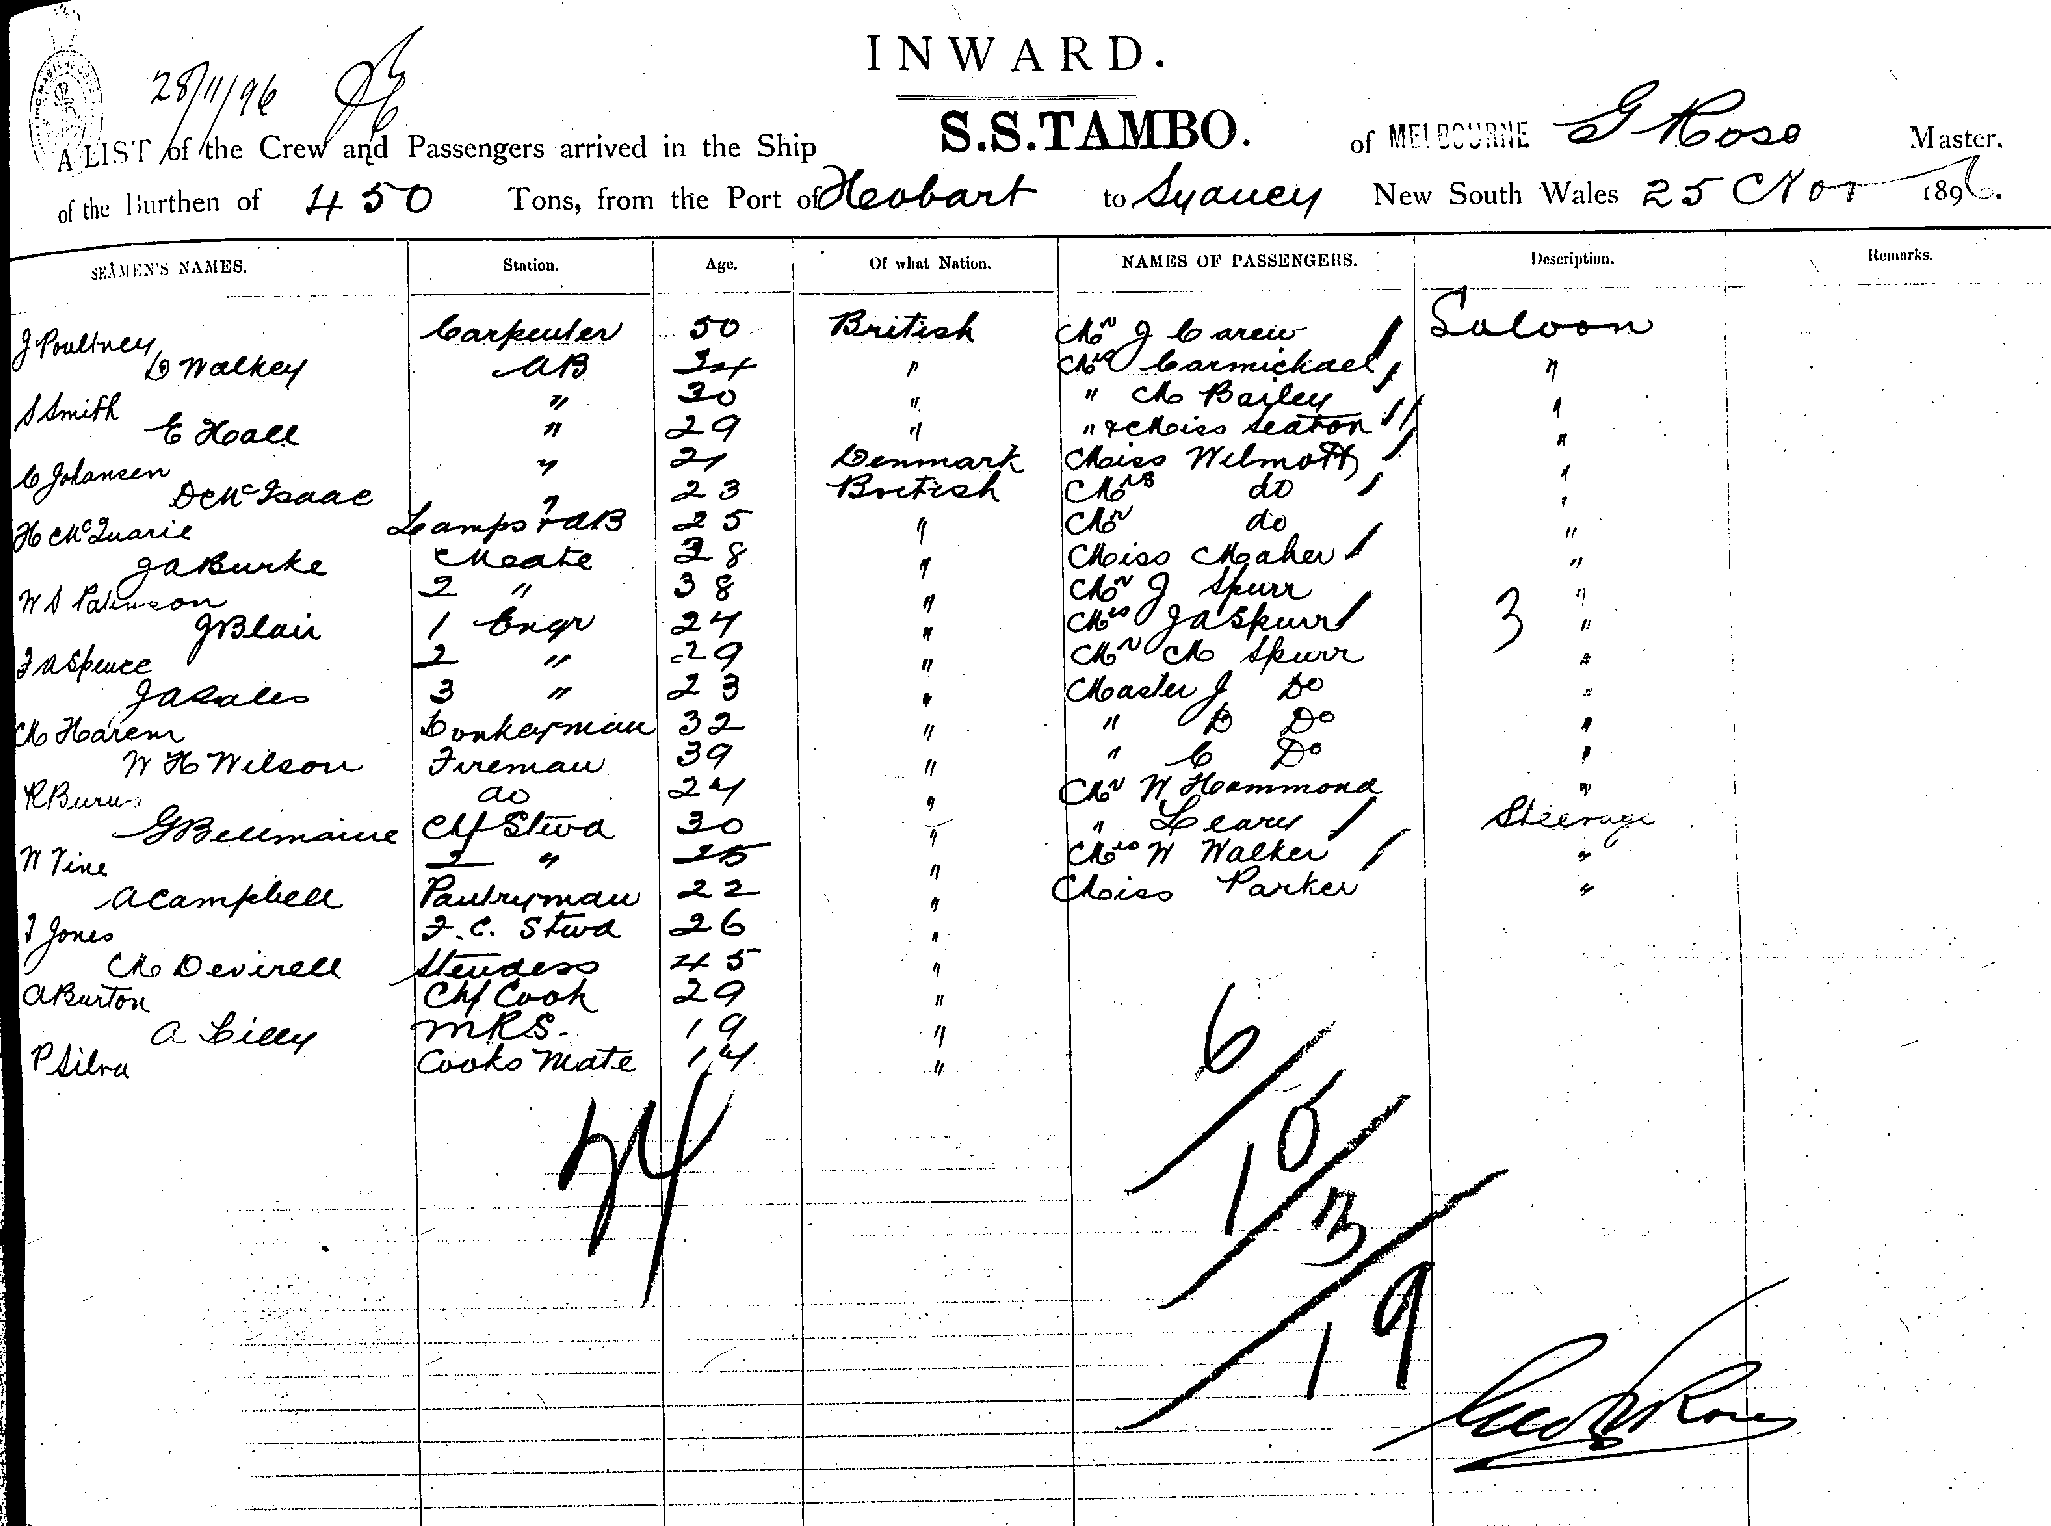 INWARD.
28/11/96
A LIST of the Crew and Passengers arrived in the Ship S.S.TAMBO. of MELBOURNE G Rose Master.
of the Burthen of 450 Tons, from the Port of Hobart to Sydney New South Wales 25 Nov 1896.
SEAMEN'S NAMES. Station. Age. Of what Nation. NAMES OF PASSENGERS. Description. Remarks.
J Poultney Carpenter 50 British Mr J Carew Saloon
D Walkey AB 34 " Mrs Carmichael "
S Smith " 30 " " M Bailey "
E Hall " 29 " " & Miss Seaton "
C Johansen " 21 Denmark Miss Wilmott "
D McIsaac " 23 British Mrs do "
H McQuarie Lamps & AB 25 " Mr do "
J A Burke Mate 38 " Miss Maher "
W S Patinson 2 " 38 " Mr J Spurr "
J Blair 1 Engr 24 " Mrs J A Spurr 3 "
F A Spence 2 " 29 " Mr M Spurr "
J A Sales 3 " 23 " Master J Do "
M Harem Donkeyman 32 " " D Do "
W H Wilson Fireman 39 " " C Do "
R Burns do 24 " Mr W Hammond "
G Bellmaine Chf Stwd 30 " " Leary Steerage
W Vine 2 " 25 " Mrs W Walker "
A Campbell Pantryman 22 " Miss Parker "
J Jones F.C. Stwd 26 "
M Deverell Stewdess 45 "
A Burton Chf Cook 29 "
A Lilly MRS. 19 "
P Silva Cooks Mate 14 "
24
6
10
3
19
Geo Rose